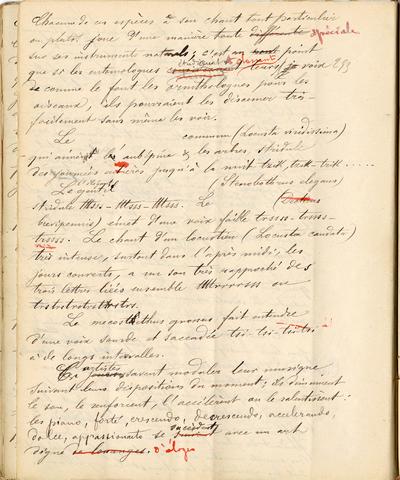 Chacune de ces espèces a son chant tout particulier
ou plutôt joue d'une manière toute différente spéciale
sur ses instruments naturels; c'est au point
que si les entomologues leurs voix
comme le font les ornithologues pour les
oiseaux, ils pourraient les discerner très-
facilement sans même les voir.
Le commun (Locusta viridissima)
qui aime l'aubépine & les arbres, stridule
des journées entières jusqu'à la nuit trik, trik-trik.....
Le gentil (Stenobothrus elegans)
stridule ttss - ttsss - ttsss. Le
brevipennis) émet d'une voix faible tosss- tosss-
tosss. Le chant d'un locustien (Locusta caudata)
très intense, surtout dans l'après midi, les
jours couverts, a un son très rapproché des
trois lettres liées ensemble ou
Le mecosthethus grossus fait entendre
d'une voix sourde et saccadée tsi-tsi-
à de longs intervalles.
Ces artistes savent moduler leur musique
suivant leurs dispositions du moment; ils diminuent
le son, le renforcent, l'accélèrent ou le ralentissent:
les piano, forte, crescendo, decrescendo, accelerando,
dolce, appassionato se succèdent avec un art
digne de louanges. d'éloges